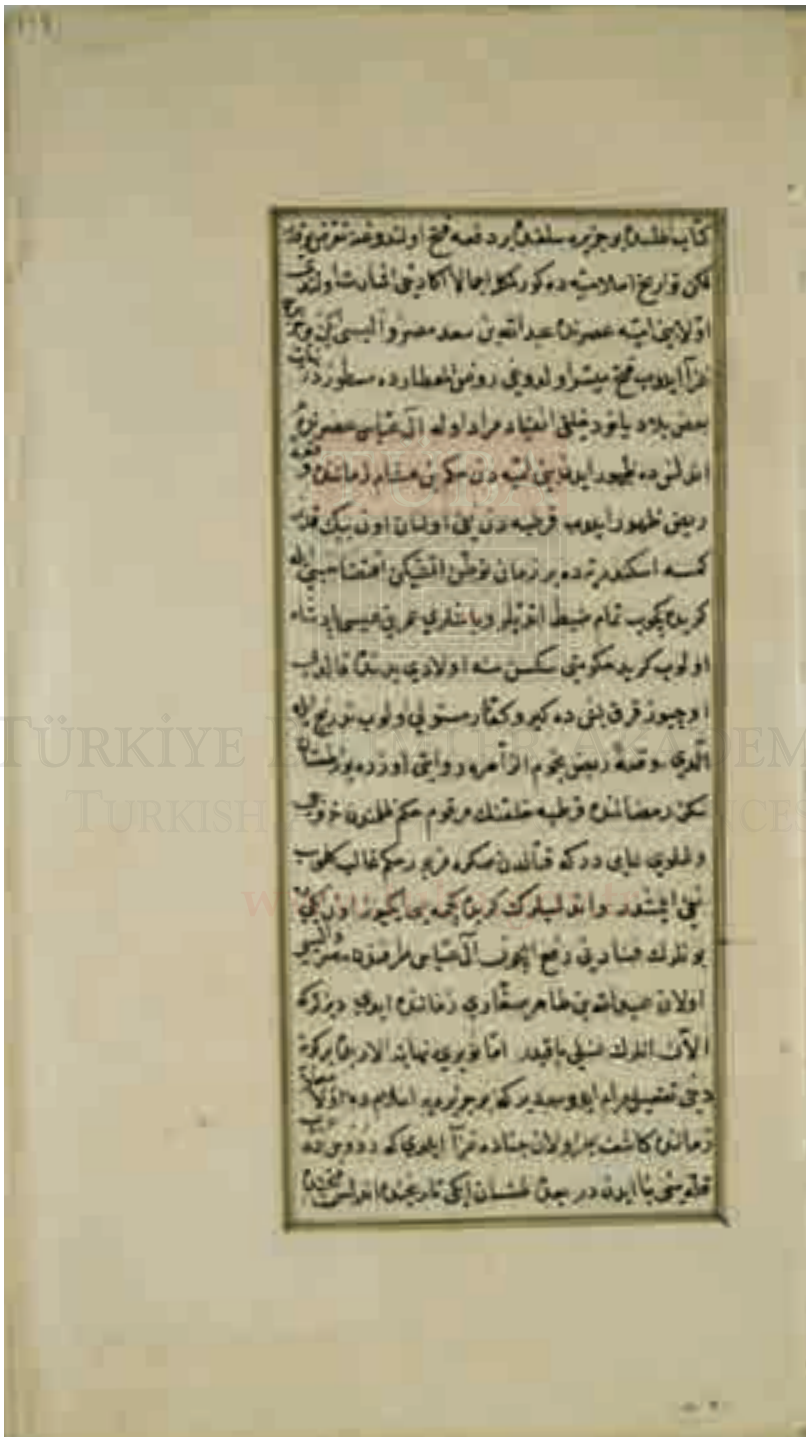 كتاب اطلسده بو جزيره سلفده بر دفعه فتح اولندوغنه تعرض يوقدر
لكن تواريخ اسلاميه ده كورلمكله اجمالا اكا دخى اشارت اولندى
اولا بنى اميه عصرنده عبد الله بن سعد مصر واليسى ايكن
غزا ايلوب فتح ميسر اولدوغى روض المعطارده مسطوردر
بعض بلاد ياخود خلقى انقياد مراد اوله آل عباس عصرنده
اندلس ده ظهور ايدن بنى اميه دن حكم بن هشام زماننده وقعه
ربض ظهور ايلوب قرطبه دن نفى اولنان اون بيك قدر
كمسه اسكندريه ده بر زمان توطن ايتمشيكن اقتضا حسبى ايله
كريده كچوب تمام ضبط ايتديلر و باشلرى عمر بن عيسى پادشاه
اولوب كريد حكومتى سكسن سنه اولادى يدنده قالوب
اوچيوز قرق بشى ده كيرو كفار مستولى اولوب
الدى وقعۀ ربض نجوم الزاهره روايتى اوزره يوز طقسان
سكز رمضاننده قرطبه خلقنك مرقوم حكم ظلمندن خروجى
در كه قتالدن صكره حكم غالب كلوب
نفى ايتمشدر و اندلسيلرك كريده كچمه سى ايكيوز اون ايكيده
بونلرك فسادينى دفع ايچون آل عباس طرفندن مصر واليسى
اولان عبد الله بن طاهر زماننده ايدى ديرلر كه
الآن انلرك نسلى باقيدر اما نويرى نهاية الاربده بركونه
دخى تفصيل مرام ايدوب دير كه بو جزيره يه اسلام ده اولا معاويه
زماننده جناده غزا ايلدى كه رودس ده
قلعه سنى بنا ايدن در بعده طقسان ايكى تاريخنده اندلس فتحنده
TÜRKİYE
TURKISH